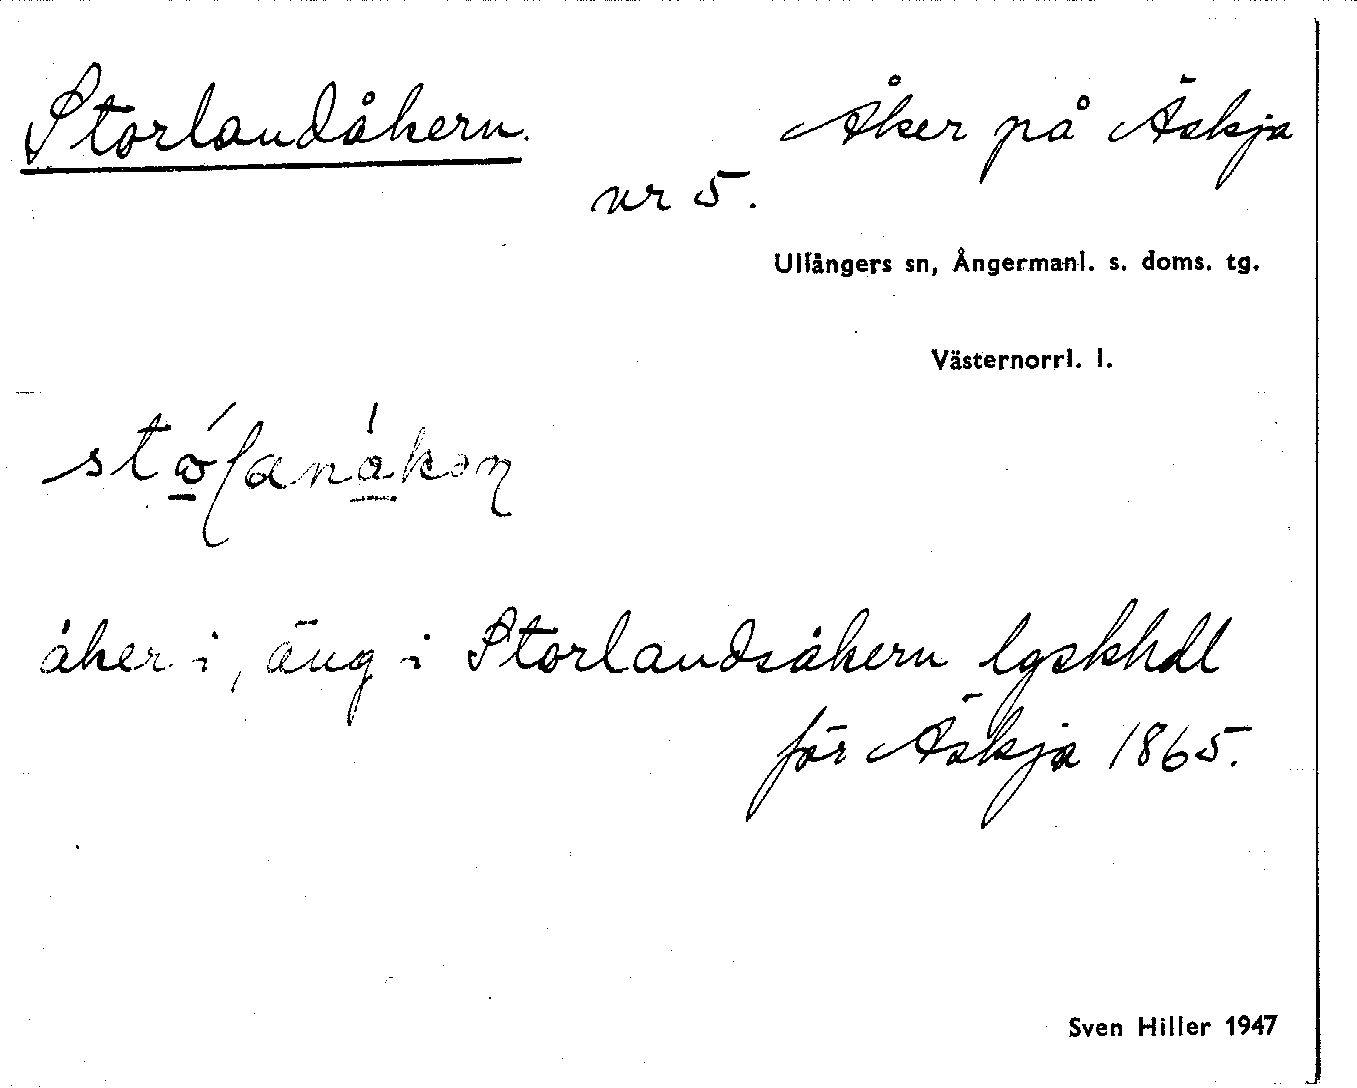 Storlandåkern.
Åker på Äskja
nr 5.
Ullångers sn, Ångermanl. s. doms. tg.
Västernorrl. l.
åker i, äng i Storlandsåkern lgskhdl
för Äskja 1865.
Sven Hiller 1947